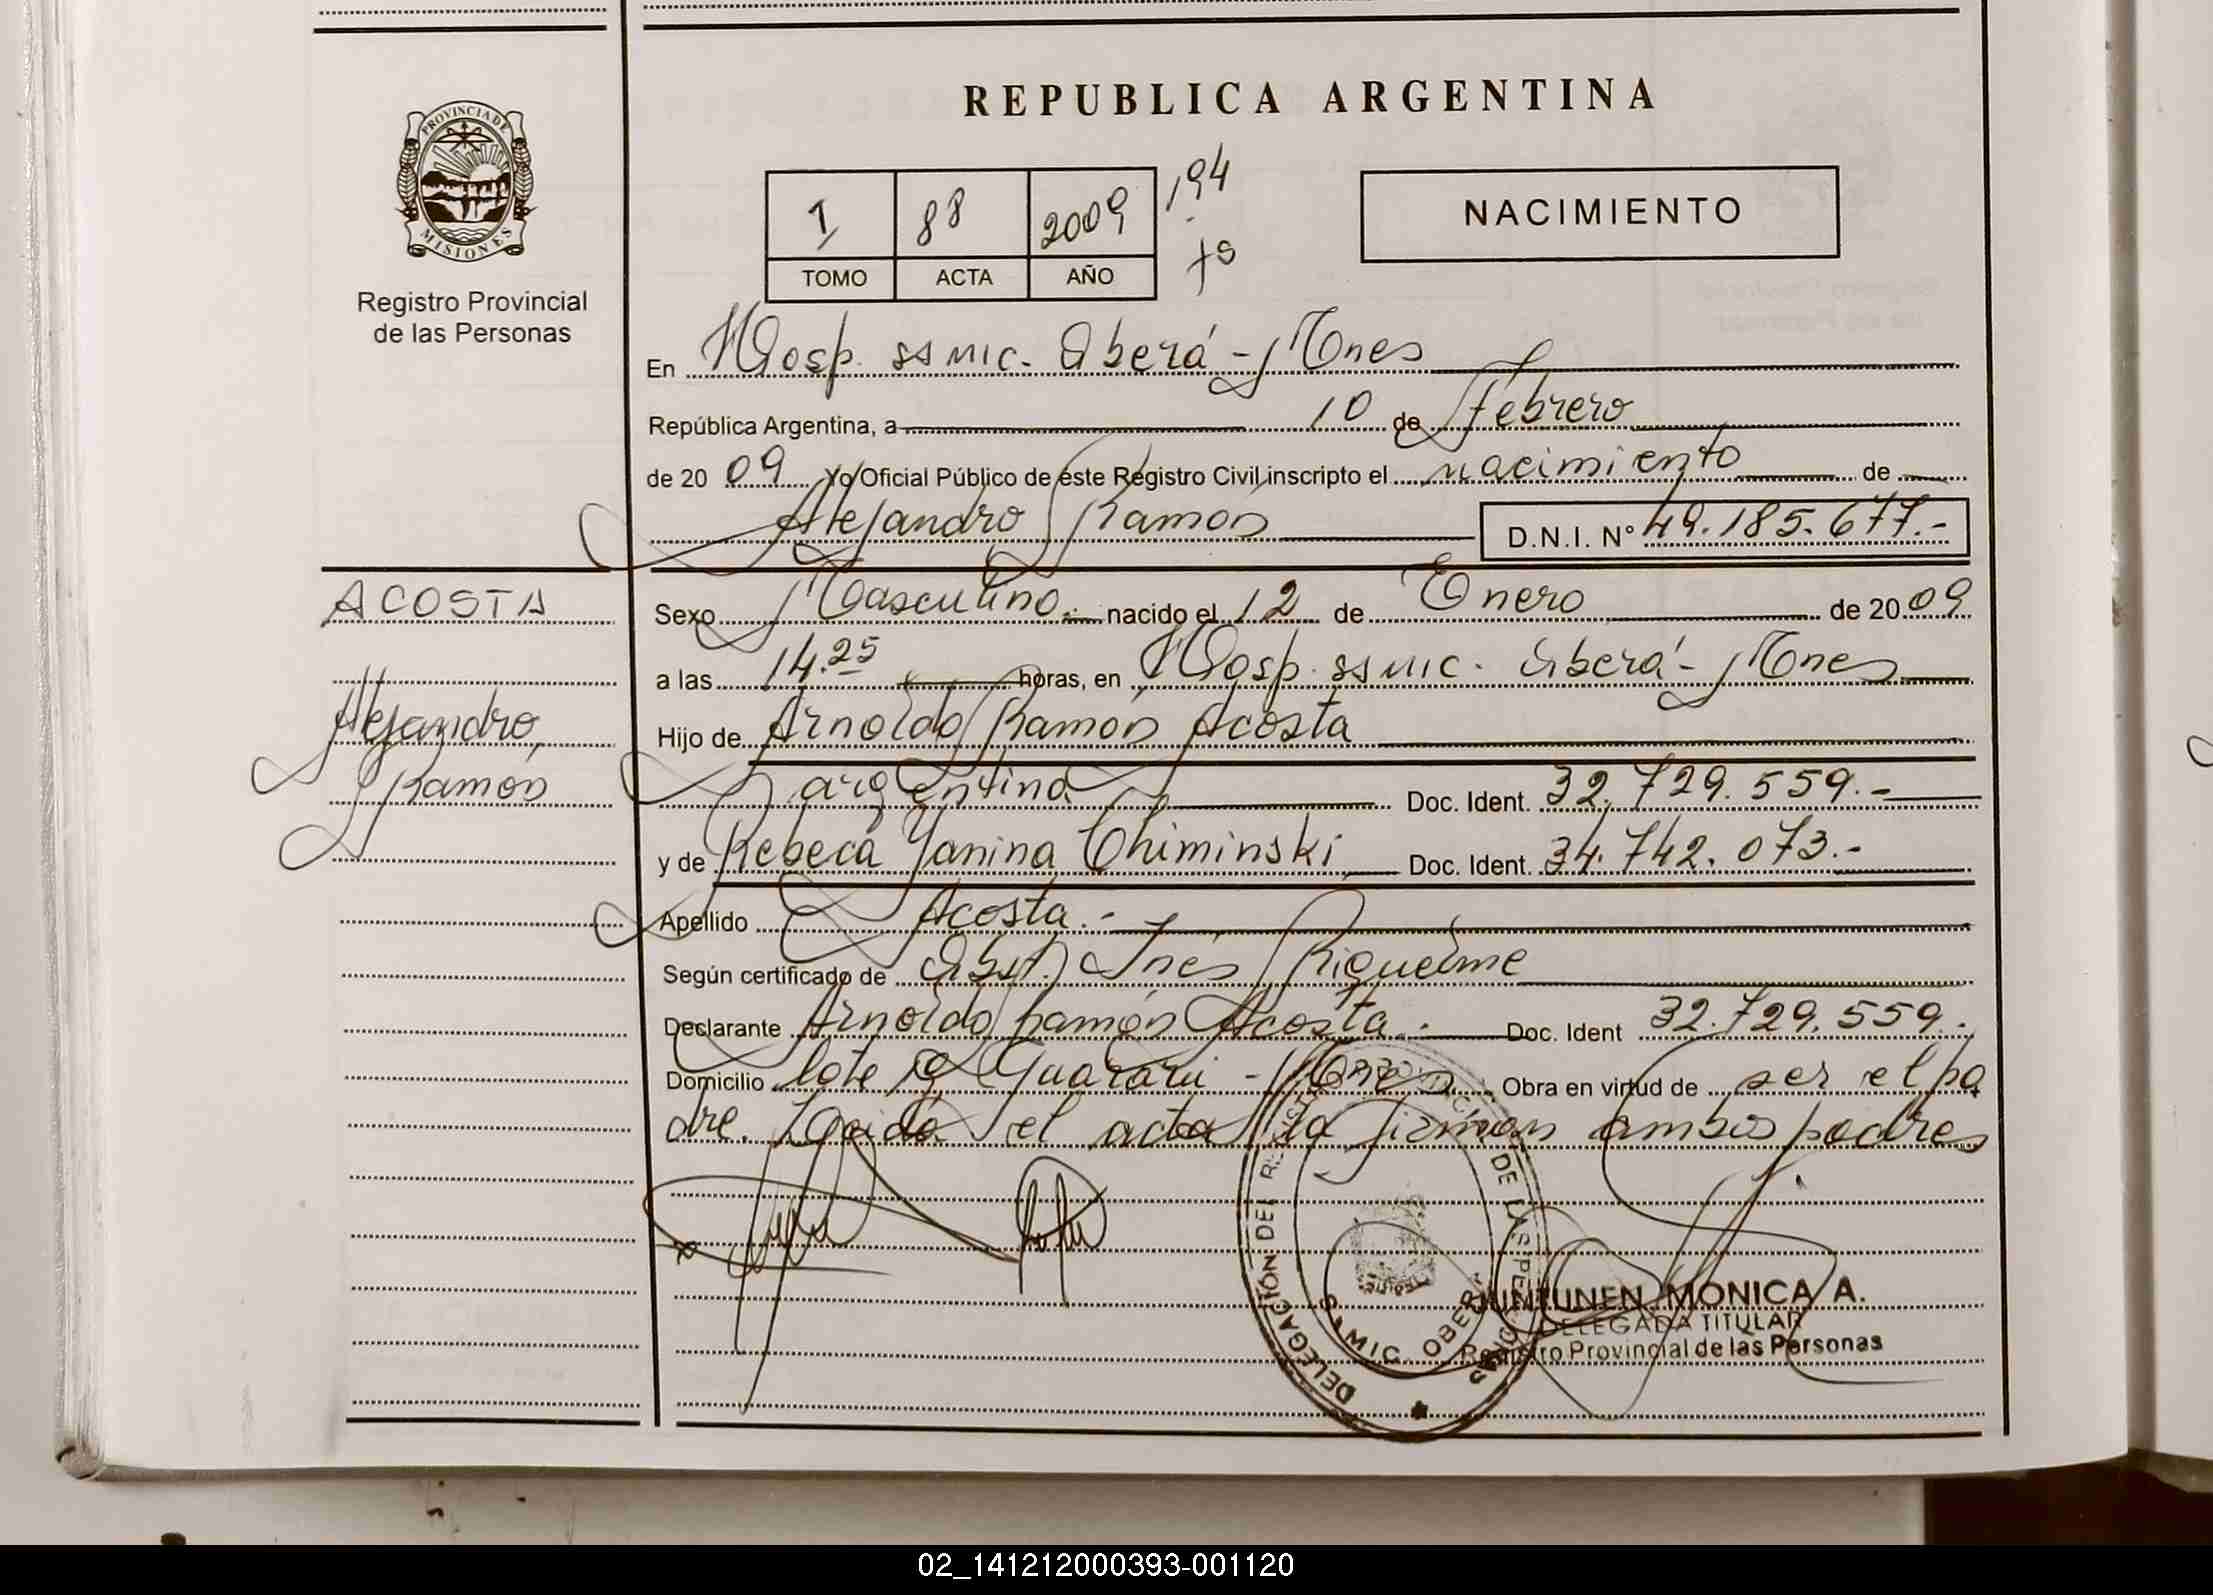 REPUBLICA ARGENTINA
PROVINCIA DE
MISIONES
Registro Provincial
de las Personas
1 88 2009 194
TOMO ACTA AÑO
fs
NACIMIENTO
En Hosp. SSMIC. Oberá - Mnes
República Argentina, a 10 de Febrero
de 2009 Yo Oficial Público de este Registro Civil inscripto el nacimiento de
Alejandro Ramón D.N.I. Nº 49.185.677.-
ACOSTA
Alejandro
Ramón
Sexo Masculino.- nacido el 12 de Enero de 2009
a las 14.25 horas, en Hosp. SSMIC. Oberá - Mnes
Hijo de Arnoldo Ramón Acosta
argentina Doc. Ident. 32.729.559.-
y de Rebeca Yanina Chiminski Doc. Ident. 34.742.073.-
Apellido Acosta.-
Según certificado de Obst. Inés Riquelme
Declarante Arnoldo Ramón Acosta.- Doc. Ident 32.729.559.
Domicilio lote 19 Guaraní - Mnes Obra en virtud de ser el pa
dre. Leída el acta la firman ambos padres
DELEGACIÓN DEL REGISTRO PROVINCIAL DE LAS PERSONAS
OBERA
JUNTUNEN MONICA A.
DELEGADA TITULAR
Registro Provincial de las Personas
02_141212000393-001120